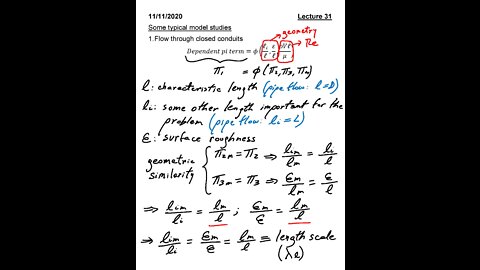 11/11/2020 Lecture 31
Some typical model studies
geometry
1.Flow through closed conduits
Re
Dependent pi term = φ(ℓi/ℓ, ε/ℓ, ρVℓ/μ)
Π1 = φ(Π2, Π3, Π4)
ℓ: characteristic length (pipe flow: ℓ=D)
ℓi: some other length important for the
problem (pipe flow: ℓi = L)
ε: surface roughness
geometric similarity { Π2m = Π2 ⇒ ℓim/ℓm = ℓi/ℓ
Π3m = Π3 ⇒ εm/ℓm = ε/ℓ
⇒ ℓim/ℓi = ℓm/ℓ ; εm/ε = ℓm/ℓ
⇒ ℓim/ℓi = εm/ε = ℓm/ℓ = length scale
(λℓ)